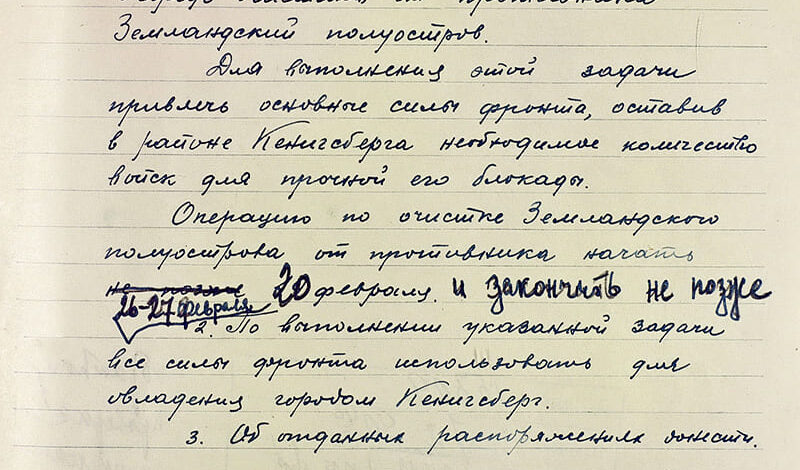 противника
Земландский полуостров.
Для выполнения этой задачи
привлечь основные силы фронта, оставив
в районе Кенигсберга необходимое количество
войск для прочной его блокады.
Операцию по очистке Земландского
полуострова от противника начать
не позже 20 февраля. и закончить не позже
26-27 февраля
2. По выполнении указанной задачи
все силы фронта использовать для
овладения городом Кенигсберг.
3. Об отданных распоряжениях донести.